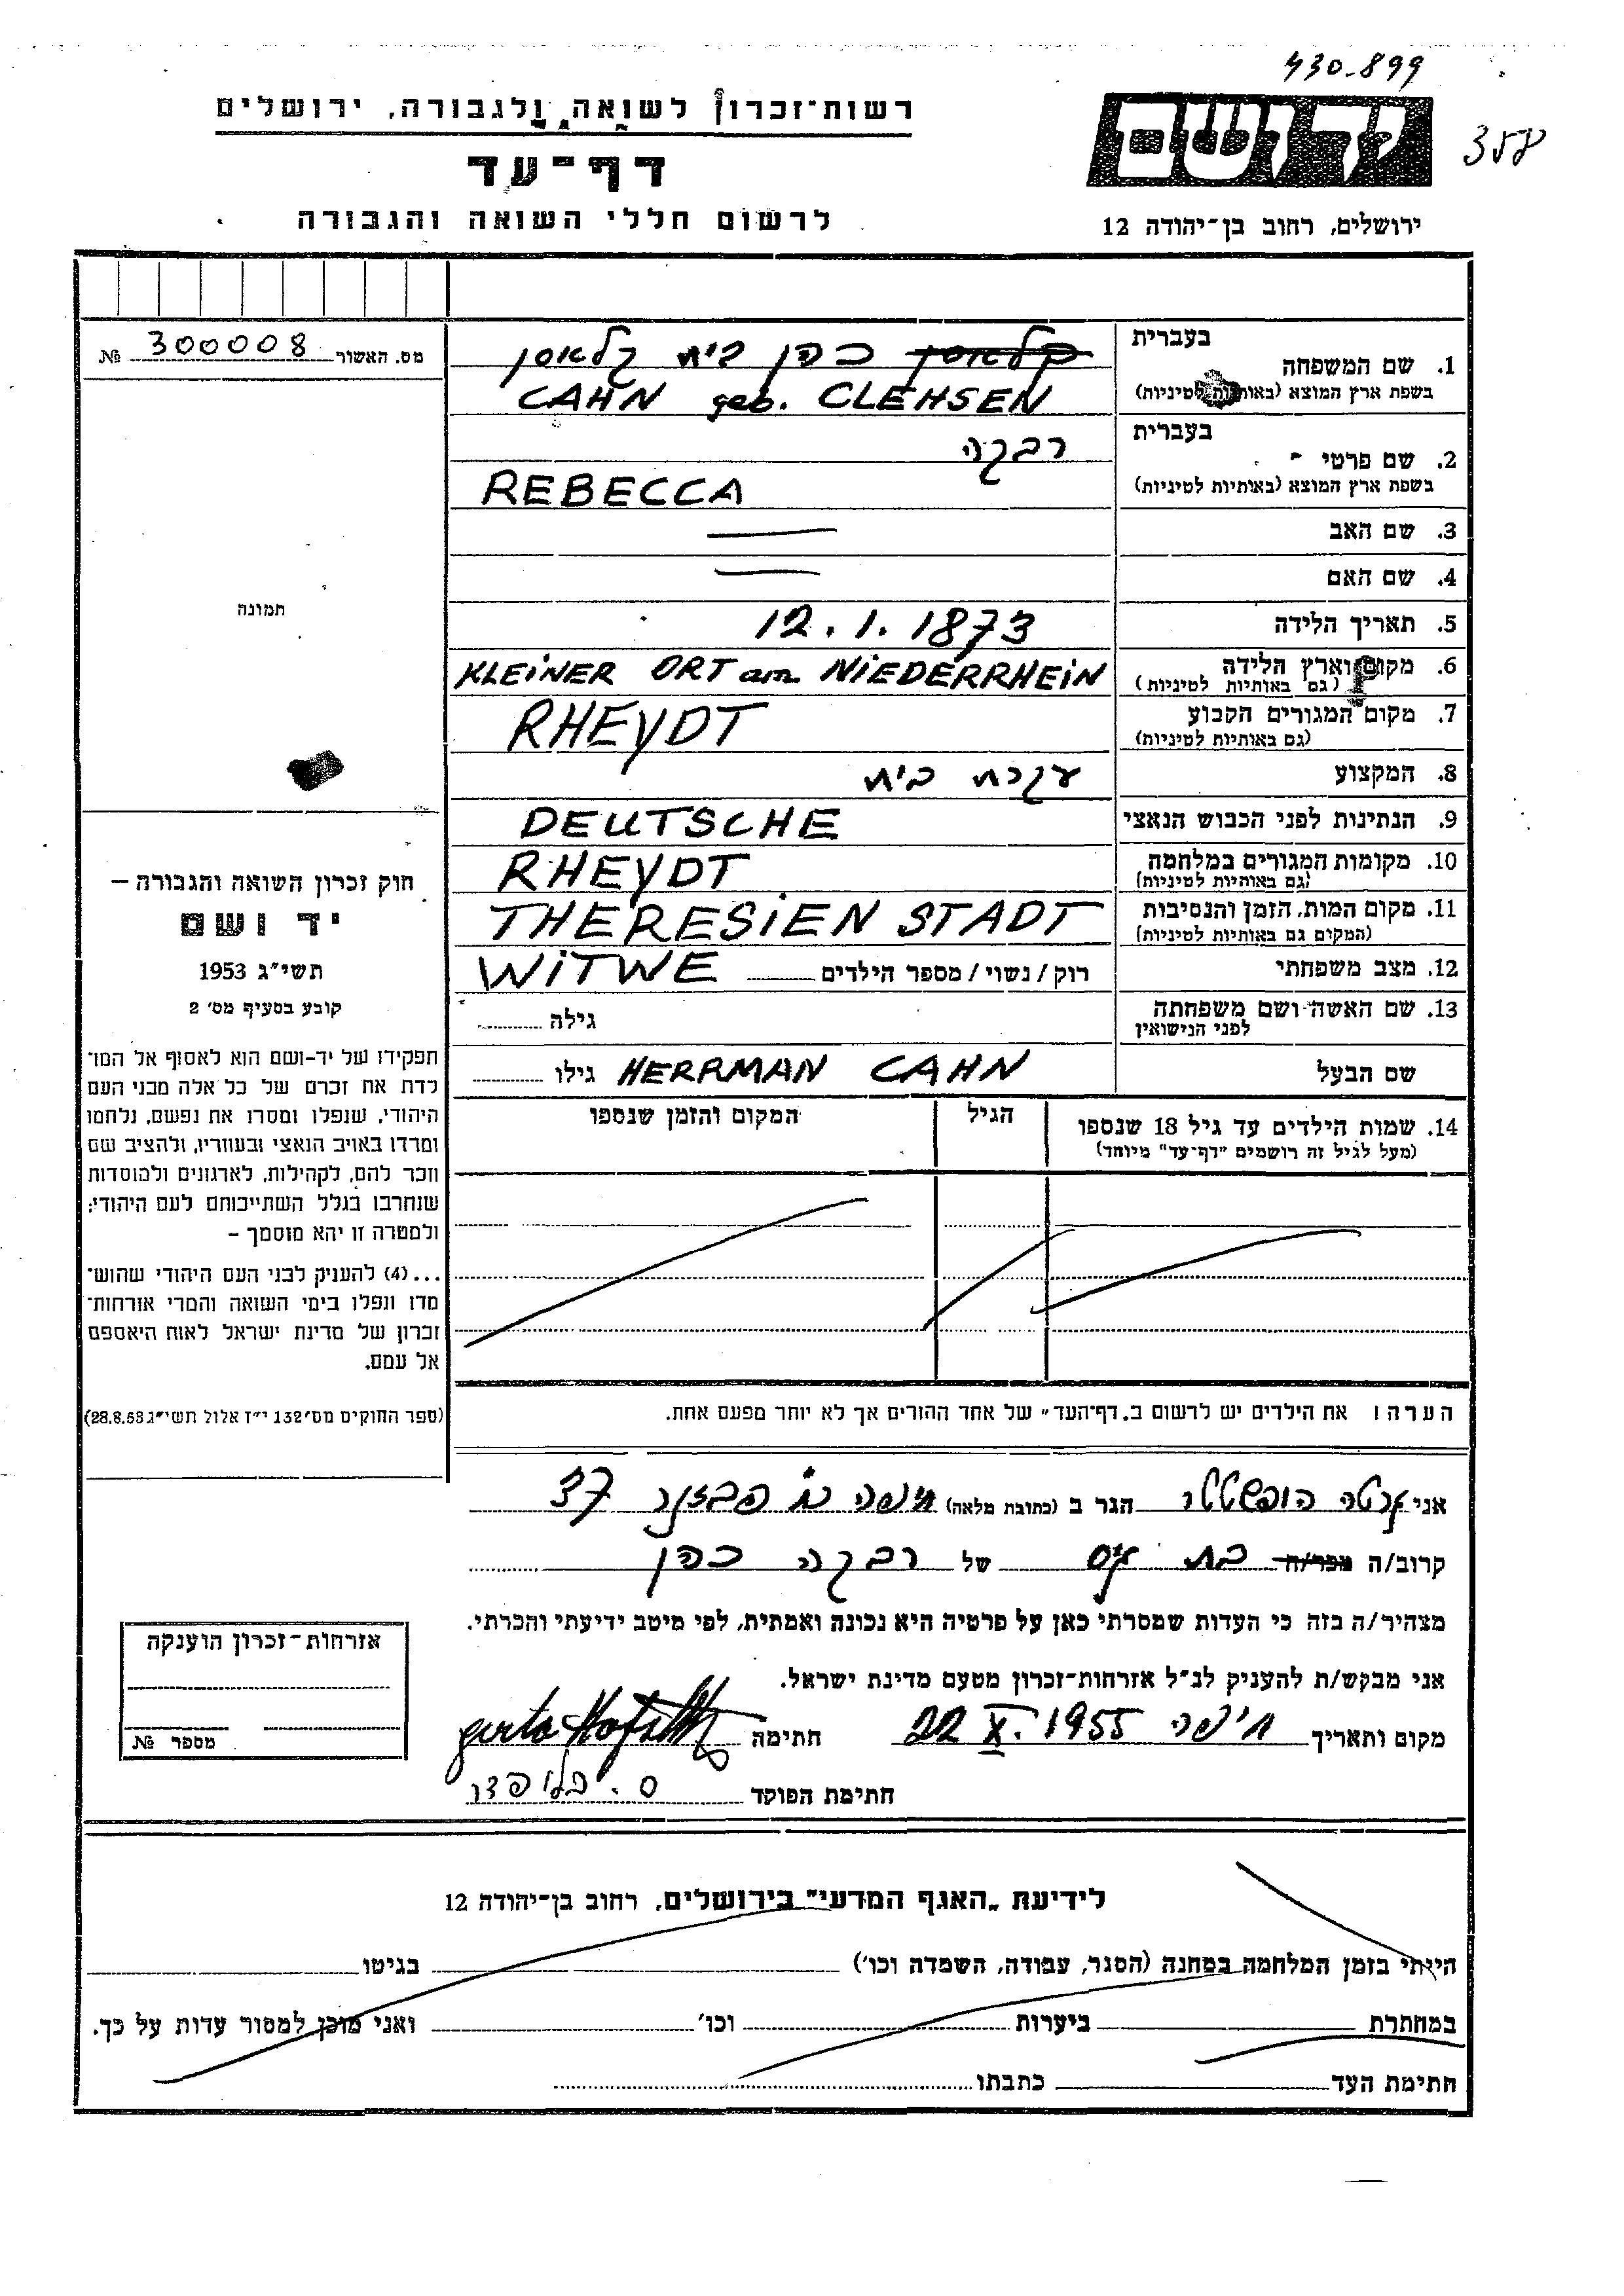 430-899
רשות-זכרון לשואה ולגבורה, ירושלים
יד ושם
358
דף-עד
לרשום חללי השואה והגבורה
ירושלים, רחוב בן-יהודה 12
מס. האשור 300008 №
בעברית
1. שם המשפחה
קלאסן כהן בית קלאסן
בשפת ארץ המוצא (באותיות לטיניות)
CAHN geb. CLEHSEN
בעברית
רבקה
2. שם פרטי
בשפת ארץ המוצא (באותיות לטיניות)
REBECCA
3. שם האב
4. שם האם
תמונה
5. תאריך הלידה 12.1.1873
6. מקום וארץ הלידה KLEINER ORT am NIEDERRHEIN
(גם באותיות לטיניות)
7. מקום המגורים הקבוע RHEYDT
(גם באותיות לטיניות)
8. המקצוע עקרת בית
9. הנתינות לפני הכבוש הנאצי DEUTSCHE
10. מקומות המגורים במלחמה RHEYDT
(גם באותיות לטיניות)
11. מקום המות, הזמן והנסיבות THERESIEN STADT
(המקום גם באותיות לטיניות)
12. מצב משפחתי רוק/נשוי/מספר הילדים WITWE
13. שם האשה ושם משפחתה גילה
לפני הנישואין
שם הבעל HERRMAN CAHN גילו
14. שמות הילדים עד גיל 18 שנספו הגיל המקום והזמן שנספו
(מעל לגיל זה רושמים "דף-עד" מיוחד)
חוק זכרון השואה והגבורה –
יד ושם
תשי"ג 1953
קובע בסעיף מס' 2
תפקידו של יד-ושם הוא לאסוף אל המו-
לדת את זכרם של כל אלה מבני העם
היהודי, שנפלו ומסרו את נפשם, נלחמו
ומרדו באויב הנאצי ובעוזריו, ולהציב שם
וזכר להם, לקהילות, לארגונים ולמוסדות
שנחרבו בגלל השתייכותם לעם היהודי;
ולמטרה זו יהא מוסמך –
...(4) להעניק לבני העם היהודי שהוש-
מדו ונפלו בימי השואה והמרי אזרחות-
זכרון של מדינת ישראל לאות היאספם
אל עמם.
(ספר החוקים מס' 132 י"ז אלול תשי"ג 28.8.53)
הערה: את הילדים יש לרשום ב"דף-העד" של אחד ההורים אך לא יותר מפעם אחת.
אני גרטה הופשטטר הגר ב (כתובת מלאה) חיפה 37
קרוב/ה מכר/ה בת אס של רבקה כהן
מצהיר/ה בזה כי העדות שמסרתי כאן על פרטיה היא נכונה ואמתית, לפי מיטב ידיעתי והכרתי.
אני מבקש/ת להעניק לנ"ל אזרחות-זכרון מטעם מדינת ישראל.
מקום ותאריך חיפה 22 X. 1955 חתימה
חתימת הפוקד
אזרחות-זכרון הוענקה
מספר №
לידיעת "האגף המדעי" בירושלים, רחוב בן-יהודה 12
הייתי בזמן המלחמה במחנה (הסגר, עבודה, השמדה וכו') בגיטו
במחתרת ביערות וכו' ואני מוכן למסור עדות על כך.
חתימת העד כתבתו